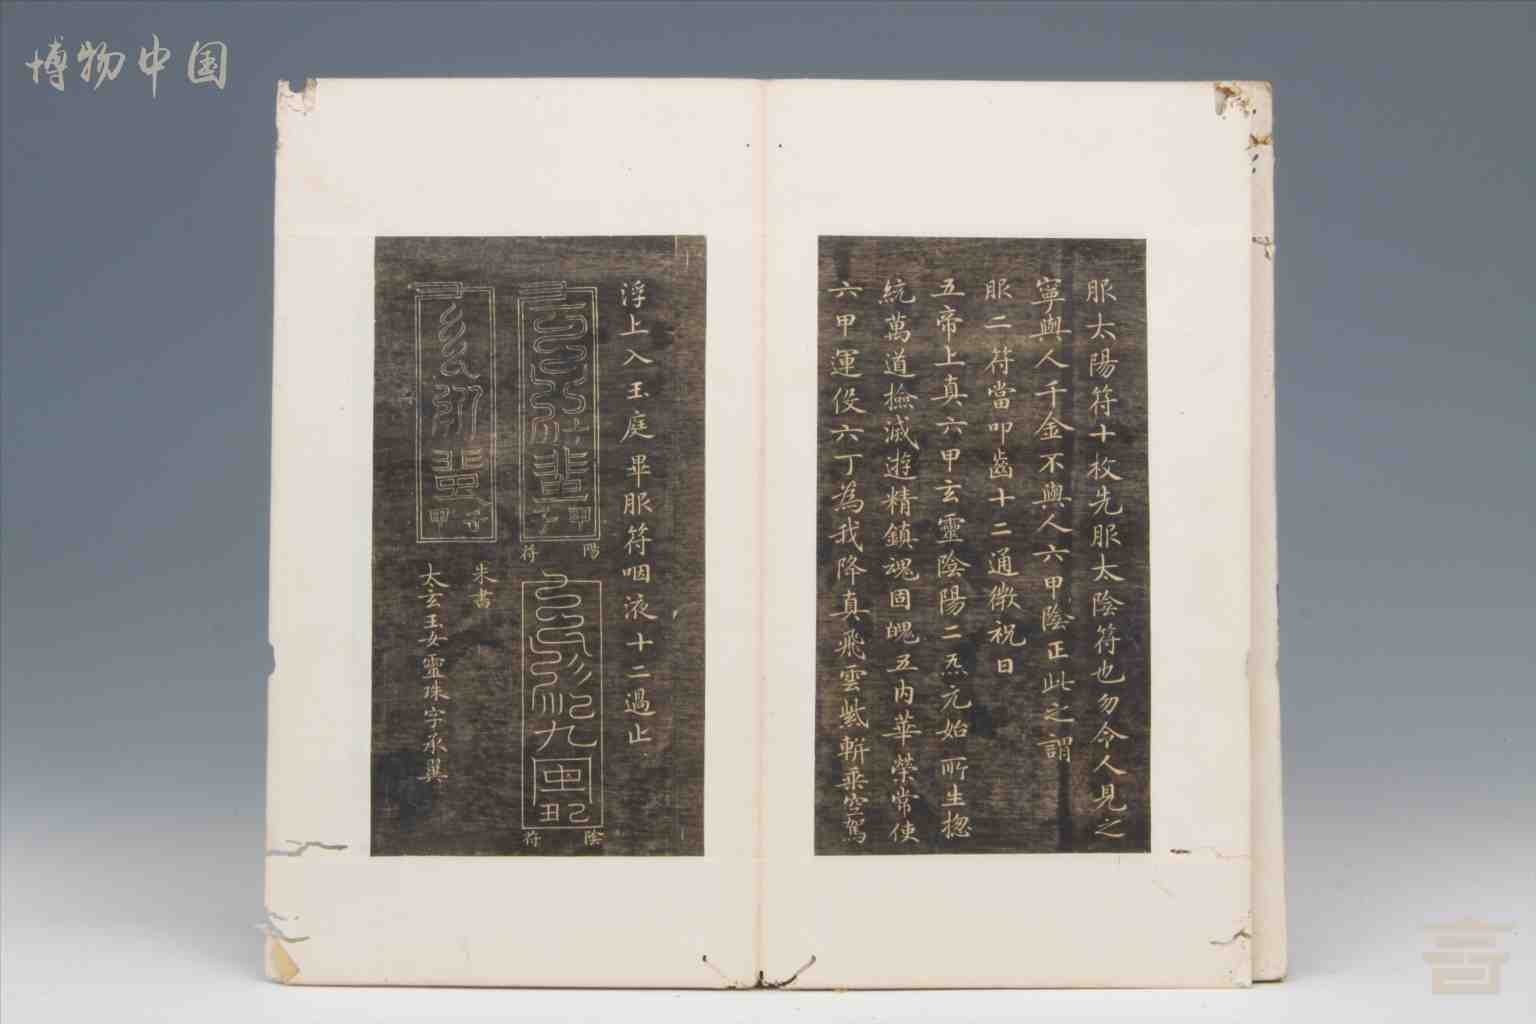 博物中国
服太陽符十枚先服太陰符也勿令人見之
寧與人千金不與人六甲陰正此之謂
服二符當叩齒十二通微祝曰
五帝上真六甲玄靈陰陽二炁元始所生揔
統萬道撿滅遊精鎮魂固魄五內華榮常使
六甲運役六丁為我降真飛雲紫軿乘空駕
浮上入玉庭畢服符咽液十二過止
陽符
陰符
朱書
太玄玉女靈珠字承翼